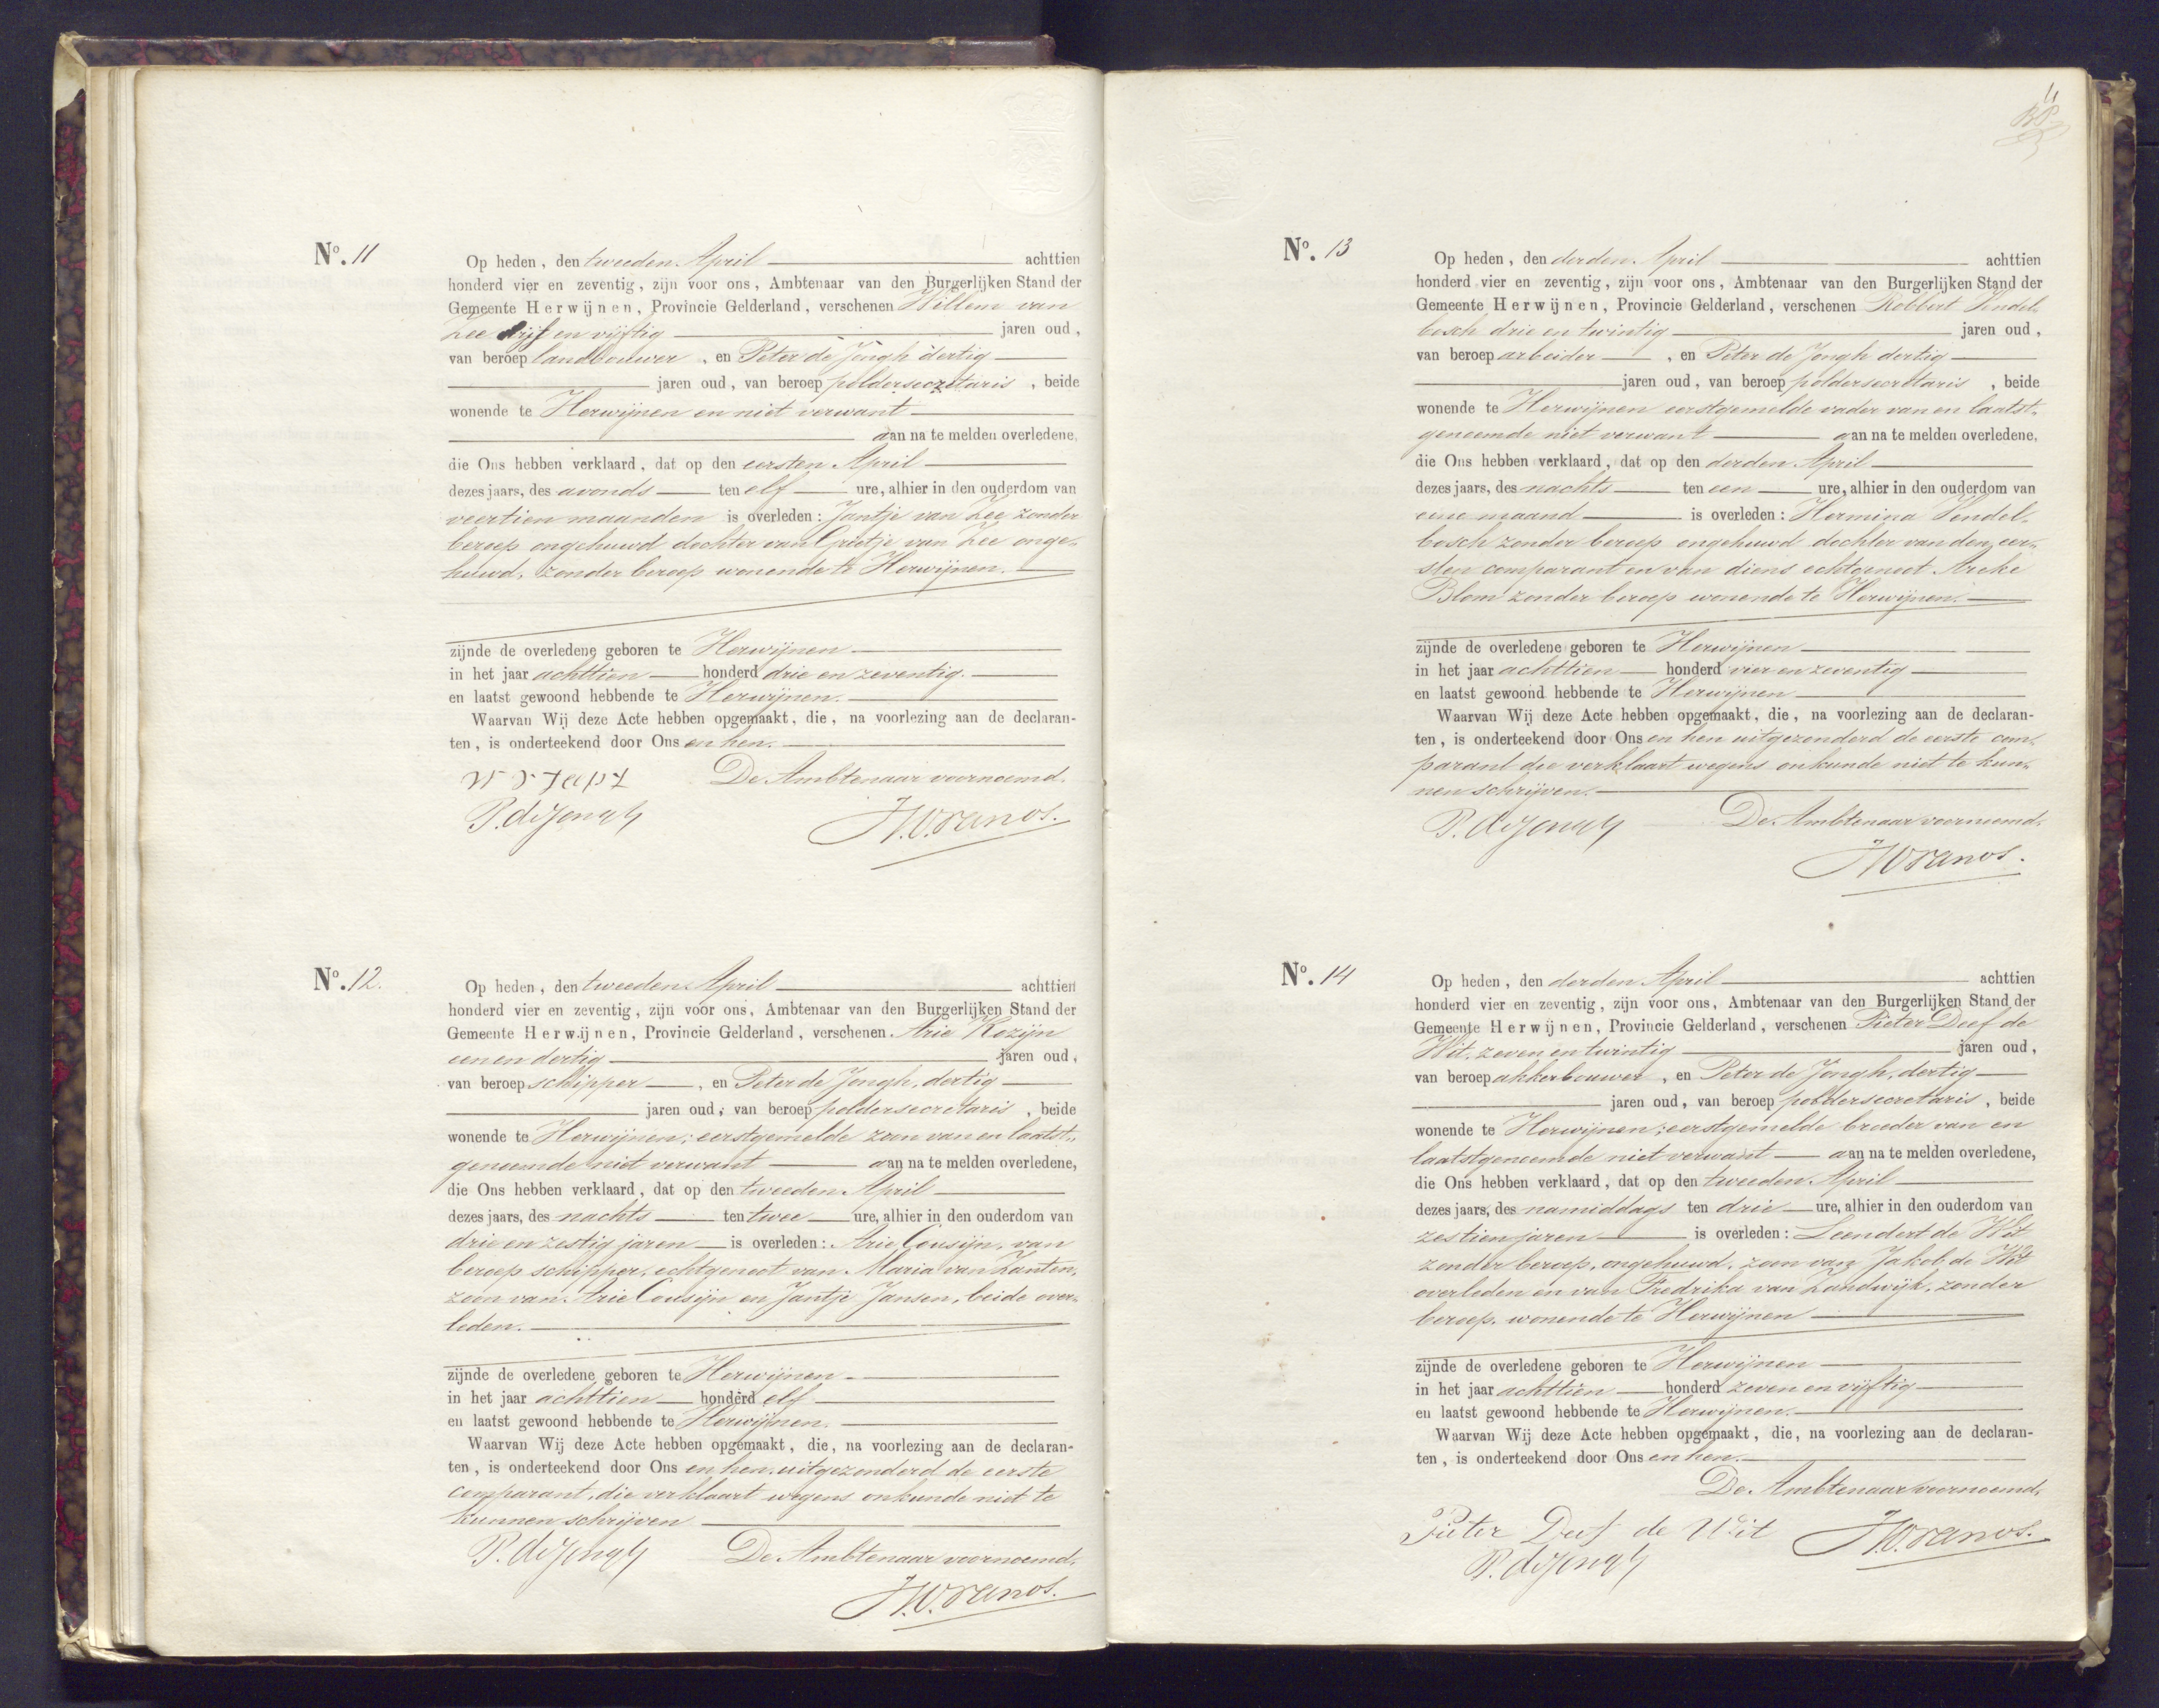 No. 11
Op heden, den tweeden April achttien
honderd vier en zeventig, zijn voor ons, Ambtenaar van den Burgerlijken Stand der
Gemeente Herwijnen, Provincie Gelderland, verschenen Willem van
Zee vijf en vijftig jaren oud,
van beroep landbouwer, en Peter de Jongh dertig
jaren oud, van beroep poldersecretaris, beide
wonende te Herwijnen en niet verwant
aan na te melden overledene,
die Ons hebben verklaard, dat op den eersten April
dezes jaars, des avonds ten elf ure, alhier in den ouderdom van
veertien maanden is overleden: Jantje van Zee zonder
beroep ongehuwd dochter van Grietje van Zee onge-
huwd, zonder beroep wonende te Herwijnen.
zijnde de overledene geboren te Herwijnen
in het jaar achttien honderd drie en zeventig.
en laatst gewoond hebbende te Herwijnen.
Waarvan Wij deze Acte hebben opgemaakt, die, na voorlezing aan de declaran-
ten, is onderteekend door Ons en hen.
De Ambtenaar voornoemd.
P. de Jongh
No. 12.
Op heden, den tweeden April achttien
honderd vier en zeventig, zijn voor ons, Ambtenaar van den Burgerlijken Stand der
Gemeente Herwijnen, Provincie Gelderland, verschenen Arie Kozijn
een en dertig jaren oud,
van beroep schipper, en Peter de Jongh, dertig
jaren oud, van beroep poldersecretaris, beide
wonende te Herwijnen; eerstgemelde zoon van en laatst-
genoemde niet verwant aan na te melden overledene,
die Ons hebben verklaard, dat op den tweeden April
dezes jaars, des nachts ten twee ure, alhier in den ouderdom van
drie en zestig jaren is overleden: Arie Cousijn, van
beroep schipper, echtgenoot van Maria van Zanten,
zoon van Arie Cousijn en Jantje Jansen, beide over-
leden.
zijnde de overledene geboren te Herwijnen
in het jaar achttien honderd elf
en laatst gewoond hebbende te Herwijnen.
Waarvan Wij deze Acte hebben opgemaakt, die, na voorlezing aan de declaran-
ten, is onderteekend door Ons en hen, uitgezonderd de eerste
comparant, die verklaart wegens onkunde niet te
kunnen schrijven
P. de Jongh De Ambtenaar voornoemd.
11
No. 13
Op heden, den derden April achttien
honderd vier en zeventig, zijn voor ons, Ambtenaar van den Burgerlijken Stand der
Gemeente Herwijnen, Provincie Gelderland, verschenen Robbert Hendel-
bosch drie en twintig jaren oud,
van beroep arbeider, en Peter de Jongh dertig
jaren oud, van beroep poldersecretaris, beide
wonende te Herwijnen eerstgemelde vader van en laatst-
genoemde niet verwant aan na te melden overledene,
die Ons hebben verklaard, dat op den derden April
dezes jaars, des nachts ten een ure, alhier in den ouderdom van
eene maand is overleden: Hermina Hendel-
bosch zonder beroep ongehuwd dochter van den eer-
sten comparant en van diens echtgenoot Areke
Blom zonder beroep wonende te Herwijnen.
zijnde de overledene geboren te Herwijnen
in het jaar achttien honderd vier en zeventig
en laatst gewoond hebbende te Herwijnen
Waarvan Wij deze Acte hebben opgemaakt, die, na voorlezing aan de declaran-
ten, is onderteekend door Ons en hen uitgezonderd de eerste com-
parant die verklaart wegens onkunde niet te kun-
nen schrijven.
P. de Jongh De Ambtenaar voornoemd.
No. 14
Op heden, den derden April achttien
honderd vier en zeventig, zijn voor ons, Ambtenaar van den Burgerlijken Stand der
Gemeente Herwijnen, Provincie Gelderland, verschenen Pieter Deef de
Wit, zeven en twintig jaren oud,
van beroep akkerbouwer, en Peter de Jongh, dertig
jaren oud, van beroep poldersecretaris, beide
wonende te Herwijnen; eerstgemelde broeder van en
laatstgenoemde niet verwant aan na te melden overledene,
die Ons hebben verklaard, dat op den tweeden April
dezes jaars, des namiddags ten drie ure, alhier in den ouderdom van
zestien jaren is overleden: Leendert de Wit
zonder beroep, ongehuwd, zoon van Jakob de Wit
overleden en van Fredrika van Zandwijk, zonder
beroep, wonende te Herwijnen
zijnde de overledene geboren te Herwijnen
in het jaar achttien honderd zeven en vijftig
en laatst gewoond hebbende te Herwijnen.
Waarvan Wij deze Acte hebben opgemaakt, die, na voorlezing aan de declaran-
ten, is onderteekend door Ons en hen.
De Ambtenaar voornoemd,
Pieter Deef de Wit
P. de Jongh